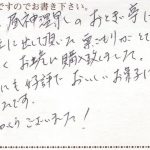 ですのでお書き下さい。
昼神温泉のおとぎ亭に
に出て頂いた栗こもりがとて
くお話し購入致しました。
にも好評でおいしいお菓子に
です。
ありがとうございました！